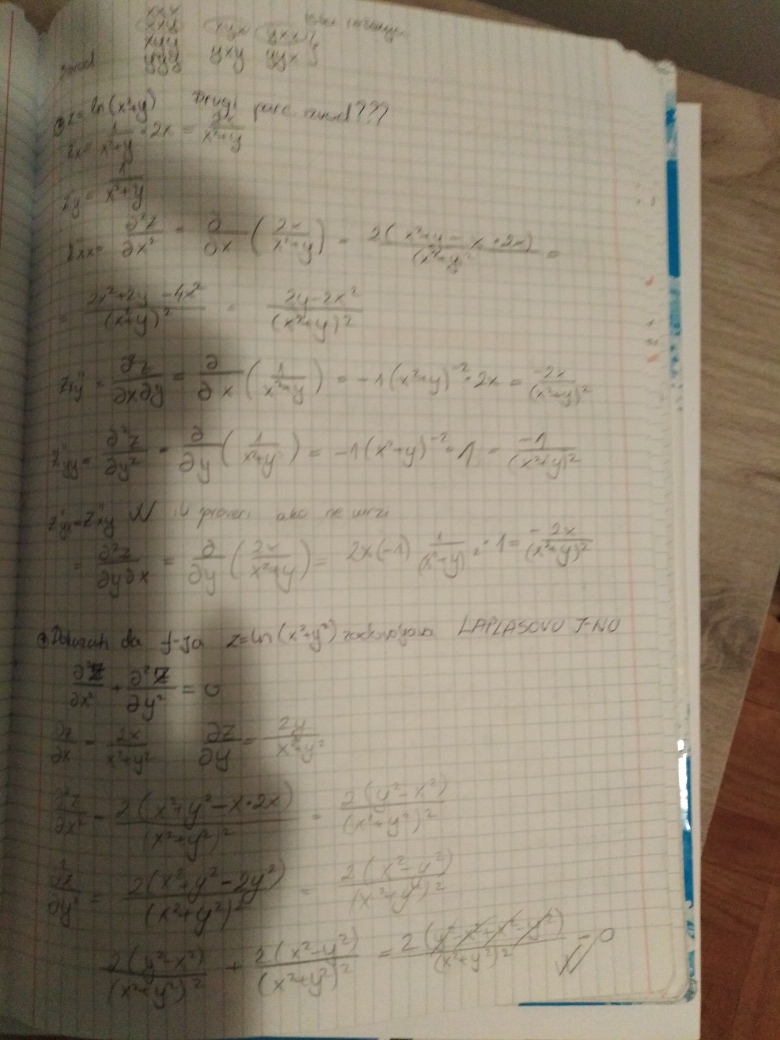 xxx
xxy xyx yxx
xyy
yyy yxy yyx
z = ln(x²+y) Drugi parc. izvod???
z'x = 1/(x²+y) · 2x = 2x/(x²+y)
z'y = 1/(x²+y)
z''xx = ∂²z/∂x² = ∂/∂x (2x/(x²+y)) = 2(x²+y - x·2x)/(x²+y)² =
= (2x²+2y-4x²)/(x²+y)² = (2y-2x²)/(x²+y)²
z''xy = ∂²z/∂x∂y = ∂/∂x (1/(x²+y)) = -1(x²+y)⁻² · 2x = -2x/(x²+y)²
z''yy = ∂²z/∂y² = ∂/∂y (1/(x²+y)) = -1(x²+y)⁻² · 1 = -1/(x²+y)²
z''yx = z''xy ili proveri ako ne
= ∂²z/∂y∂x = ∂/∂y (2x/(x²+y)) = 2x(-1) 1/(x²+y)² · 1 = -2x/(x²+y)²
Dokazati da f-ja z=ln(x²+y²) zadovoljava LAPLASOVU J-NU
∂²z/∂x² + ∂²z/∂y² = 0
∂z/∂x = 2x/(x²+y²) ∂z/∂y = 2y/(x²+y²)
∂²z/∂x² = 2(x²+y²-x·2x)/(x²+y²)² = 2(y²-x²)/(x²+y²)²
∂²z/∂y² = 2(x²+y²-2y²)/(x²+y²)² = 2(x²-y²)/(x²+y²)²
2(y²-x²)/(x²+y²)² + 2(x²-y²)/(x²+y²)² = 2(y²-x²+x²-y²)/(x²+y²)² = 0